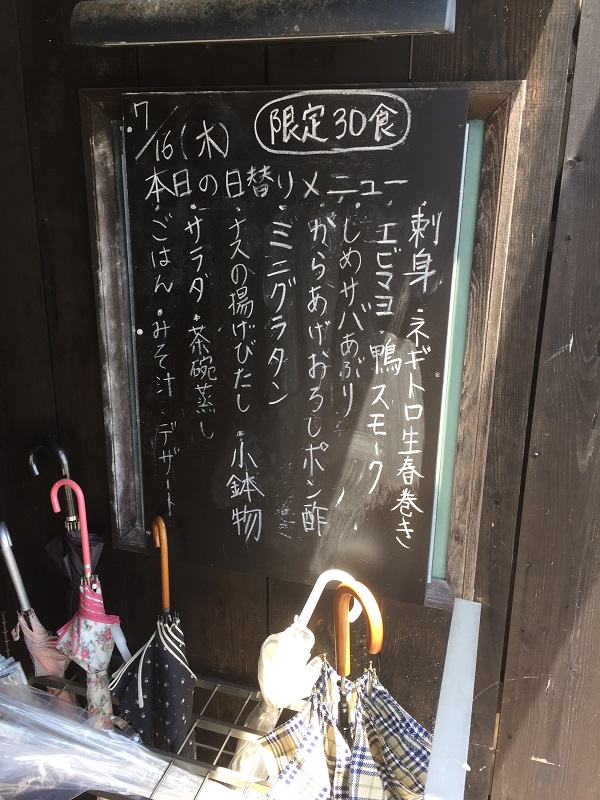 7/16(木)
限定30食
本日の日替りメニュー
・刺身・ネギトロ生春巻き
・エビマヨ・鴨スモーク
・しめサバあぶり
・からあげおろしポン酢
・ミニグラタン
・ナスの揚げびたし・小鉢物
・サラダ・茶碗蒸し
・ごはん・みそ汁・デザート